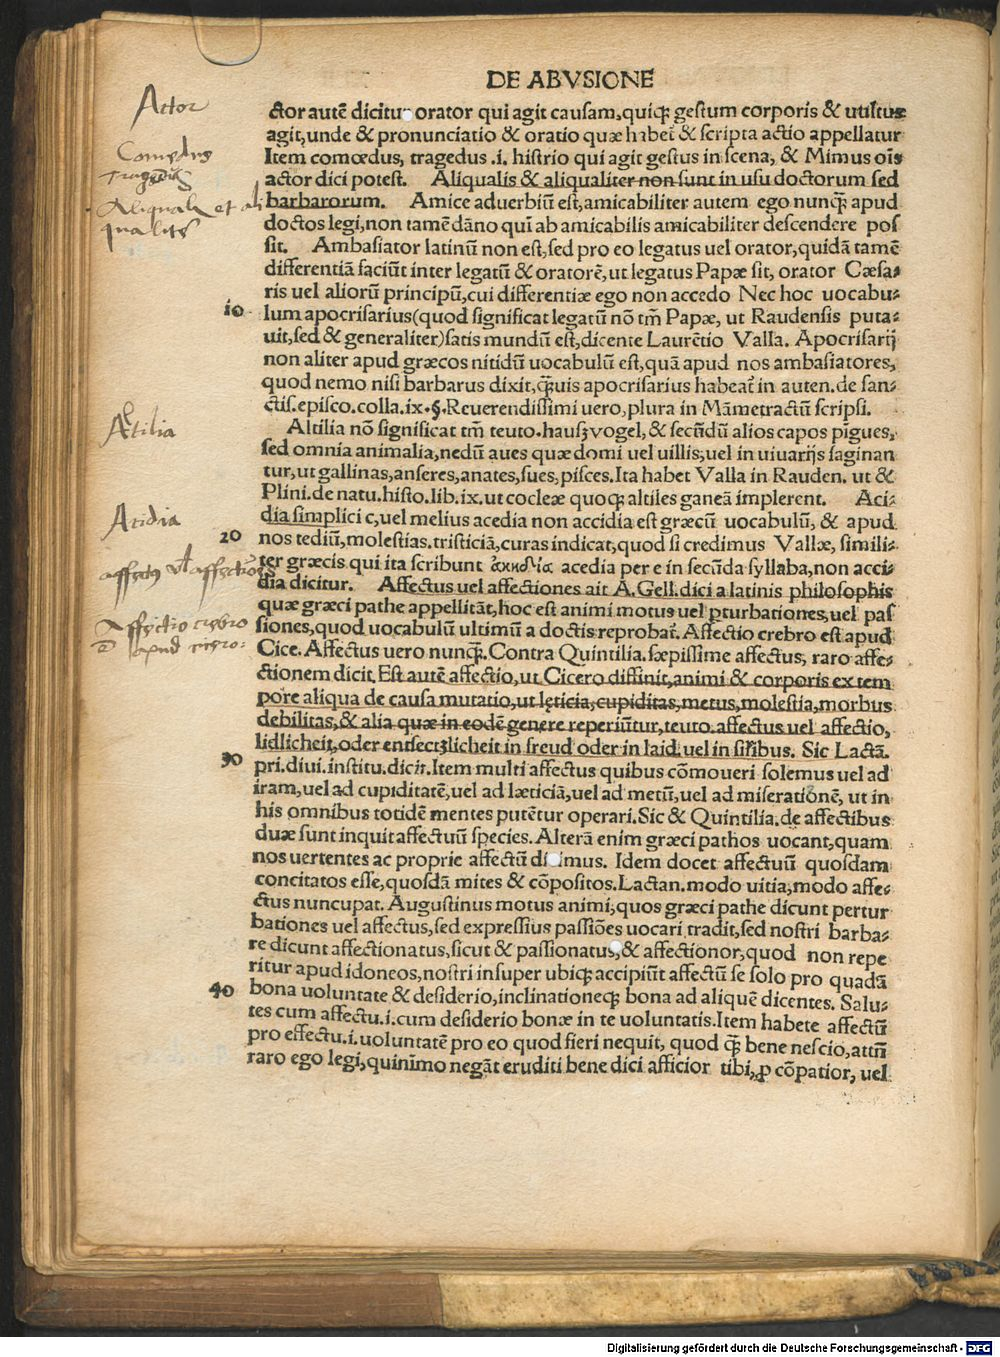 DE ABVSIONE
Actor
ctor autē dicitur orator qui agit causam, quiqꝫ gestum corporis & uultus
agit, unde & pronunciatio & oratio quæ habet & scripta actio appellatur
Comędus
Item comœdus, tragedus .i. histrio qui agit gestus in scena, & Mimus oīs
Tragędus
actor dici potest. Aliqualis & aliqualiter non sunt in usu doctorum sed
Aliqualis et ali
barbarorum. Amice aduerbiū est, amicabiliter autem ego nunqꝫ apud
qualit̄
doctos legi, non tamē dāno qui ab amicabilis amicabiliter descendere pos
sit. Ambasiator latinū non est, sed pro eo legatus uel orator, quidā tamē
differentiā faciūt inter legatū & oratorē, ut legatus Papæ sit, orator Cæsa-
ris uel aliorū principū, cui differentiæ ego non accedo Nec hoc uocabu-
10
lum apocrisarius (quod significat legatū nō tm̄ Papæ, ut Raudensis puta-
uit, sed & generaliter) satis mundū est, dicente Laurētio Valla. Apocrisarij
non aliter apud græcos nitidū uocabulū est, quā apud nos ambasiatores,
quod nemo nisi barbarus dixit, qꝫuis apocrisarius habeat̄ in auten. de san-
ctis. episco. colla. ix. §. Reuerendissimi uero, plura in Māmetractū scripsi.
Æltilia
Altilia nō significat tm̄ teuto. hauſzvogel, & secūdū alios capos pīgues,
sed omnia animalia, nedū aues quæ domi uel uillis, uel in uiuarijs saginan
tur, ut gallinas, anseres, anates, sues, pisces. Ita habet Valla in Rauden. ut &
Plini. de natu. histo. lib. ix. ut cocleæ quoqꝫ altiles ganeā implerent. Aci-
Acidia
dia simplici c, uel melius acedia non accidia est græcū uocabulū, & apud
20
nos tediū, molestias. tristiciā, curas indicat, quod si credimus Vallæ, simili-
affectus vl affectiones
ter græcis qui ita scribunt ἀκηδία acedia per e in secūda syllaba, non acci-
dia dicitur. Affectus uel affectiones ait A. Gell. dici a latinis philosophis
quæ græci pathe appellitāt, hoc est animi motus uel ꝑturbationes, uel pas
Affectio crebro
siones, quod uocabulū ultimū a doctis reprobat̄. Affectio crebro est apud
apud cicero:
Cice. Affectus uero nunqꝫ. Contra Quintilia. sæpissime affectus, raro affe-
ctionem dicit. Est autē affectio, ut Cicero diffinit, animi & corporis ex tem
pore aliqua de causa mutatio, ut lęticia, cupiditas, metus, molestia, morbus
debilitas, & alia quæ in eodē genere reperiūtur, teuto. affectus uel affectio,
lidlicheit, oder entsectzlicheit in freud oder in laid. uel in similibus. Sic Lactā.
30
pri. diui. institu. dicit. Item multi affectus quibus cōmoueri solemus uel ad
iram, uel ad cupiditatē, uel ad læticiā, uel ad metū, uel ad miserationē, ut in
his omnibus totidē mentes putētur operari. Sic & Quintilia. de affectibus
duæ sunt inquit affectuū species. Alterā enim græci pathos uocant, quam
nos uertentes ac proprie affectū dicimus. Idem docet affectuū quosdam
concitatos esse, quosdā mites & cōpositos. Lactan. modo uitia, modo affe-
ctus nuncupat. Augustinus motus animi, quos græci pathe dicunt pertur
bationes uel affectus, sed expressius passiōes uocari tradit, sed nostri barba-
re dicunt affectionatus, sicut & passionatus, & affectionor, quod non repe
ritur apud idoneos, nostri insuper ubiqꝫ accipiūt affectū se solo pro quadā
40
bona uoluntate & desiderio, inclinationeqꝫ bona ad aliquē dicentes. Salu-
tes cum affectu. i. cum desiderio bonæ in te uoluntatis. Item habete affectū
pro effectu. i. uoluntatē pro eo quod fieri nequit, quod qꝫ bene nescio, attn̄
raro ego legi, quinimo negāt eruditi bene dici afficior tibi, ꝓ cōpatior, uel
Digitalisierung gefördert durch die Deutsche Forschungsgemeinschaft - DFG